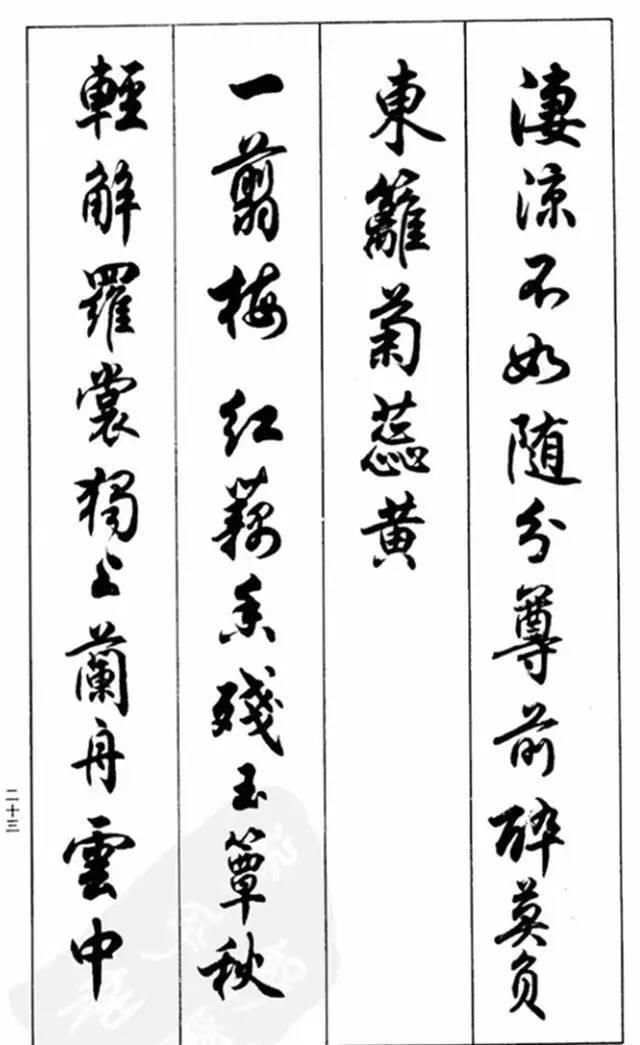 淒涼不如随分尊前醉莫负
東籬菊蕊黄
一翦梅 紅藕香殘玉簟秋
輕解羅裳獨上蘭舟雲中
二十三